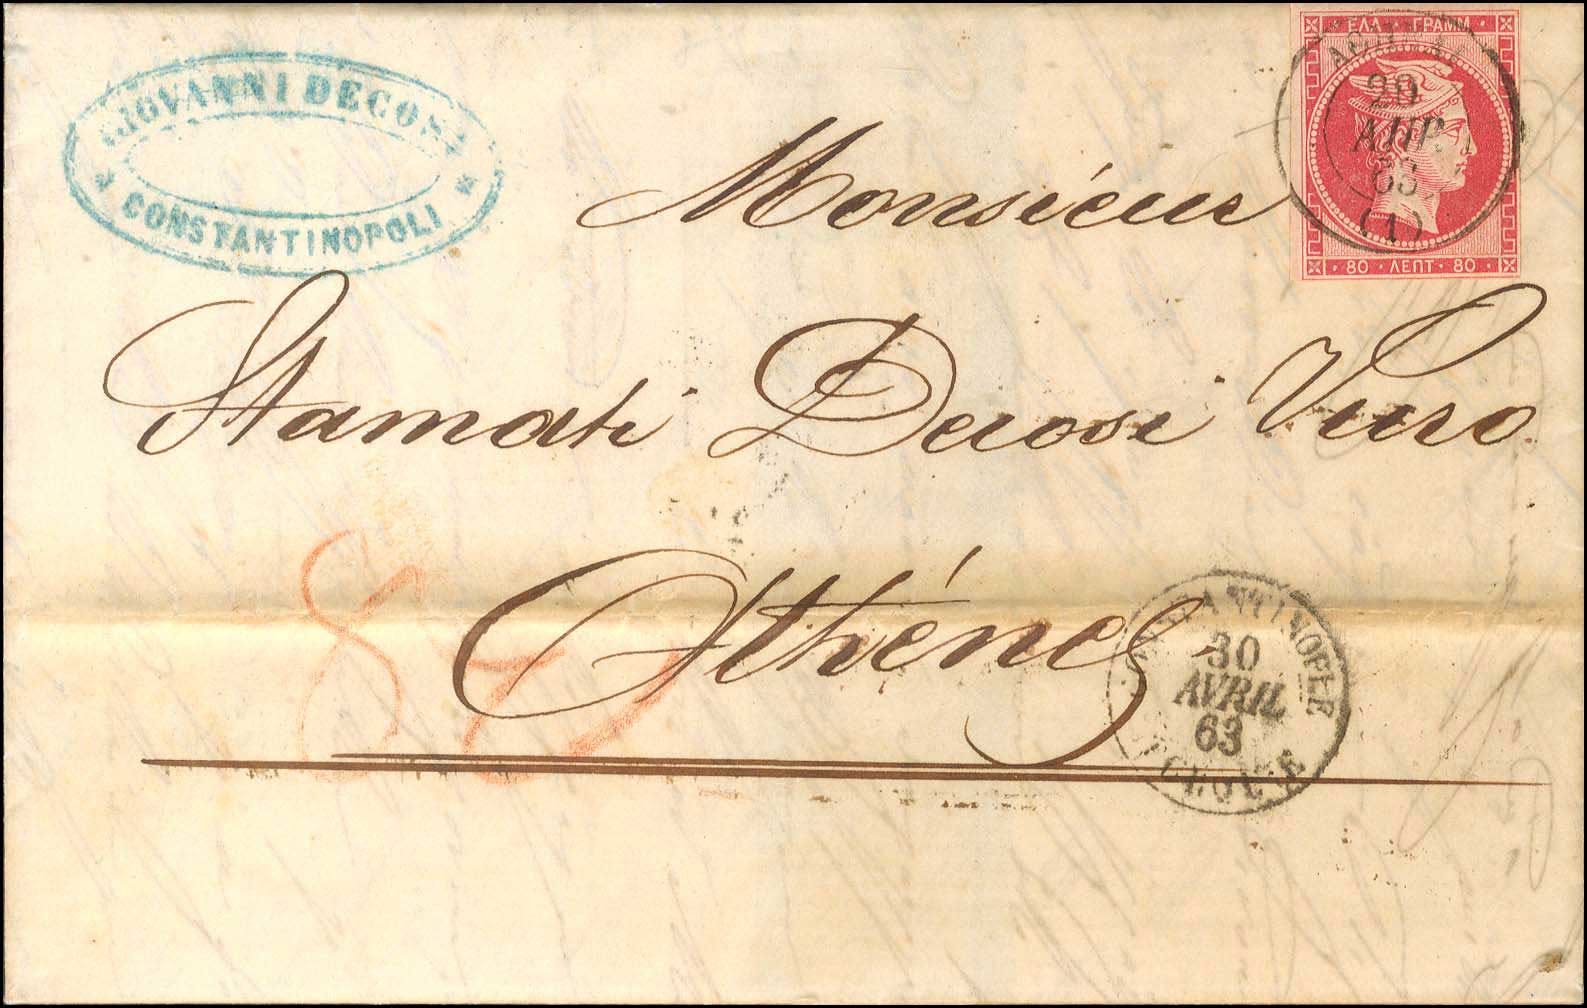 GIOVANNI DECOSI
CONSTANTINOPOLI
ΕΛΛ ΓΡΑΜΜ
20
ΑΠΡ.
63
(1)
80 · ΛΕΠΤ · 80
Monsieur
Stamati Decosi Vuro
Athènes
80
CONSTANTINOPLE
30
AVRIL
63